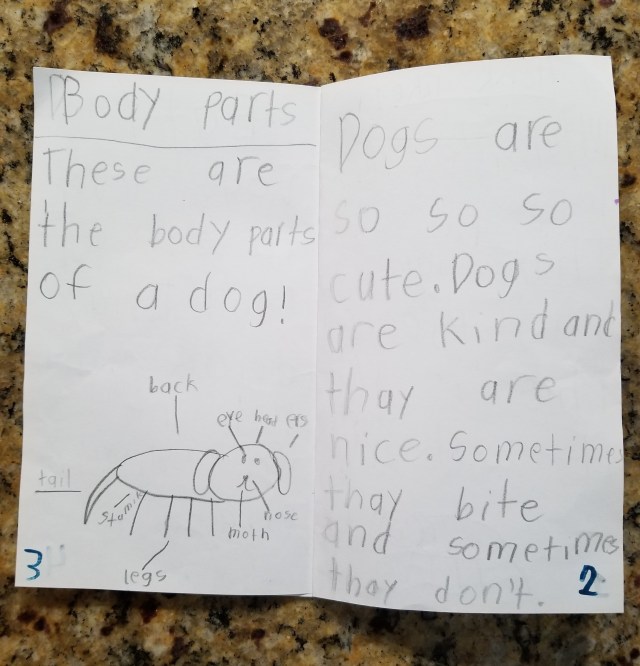 Body parts
These are
the body parts
of a dog!
back
eye head ers
tail
stumik
nose
moth
legs
3
Dogs are
so so so
cute. Dogs
are kind and
thay are
nice. Sometimes
thay bite
and sometimes
thay don't.
2